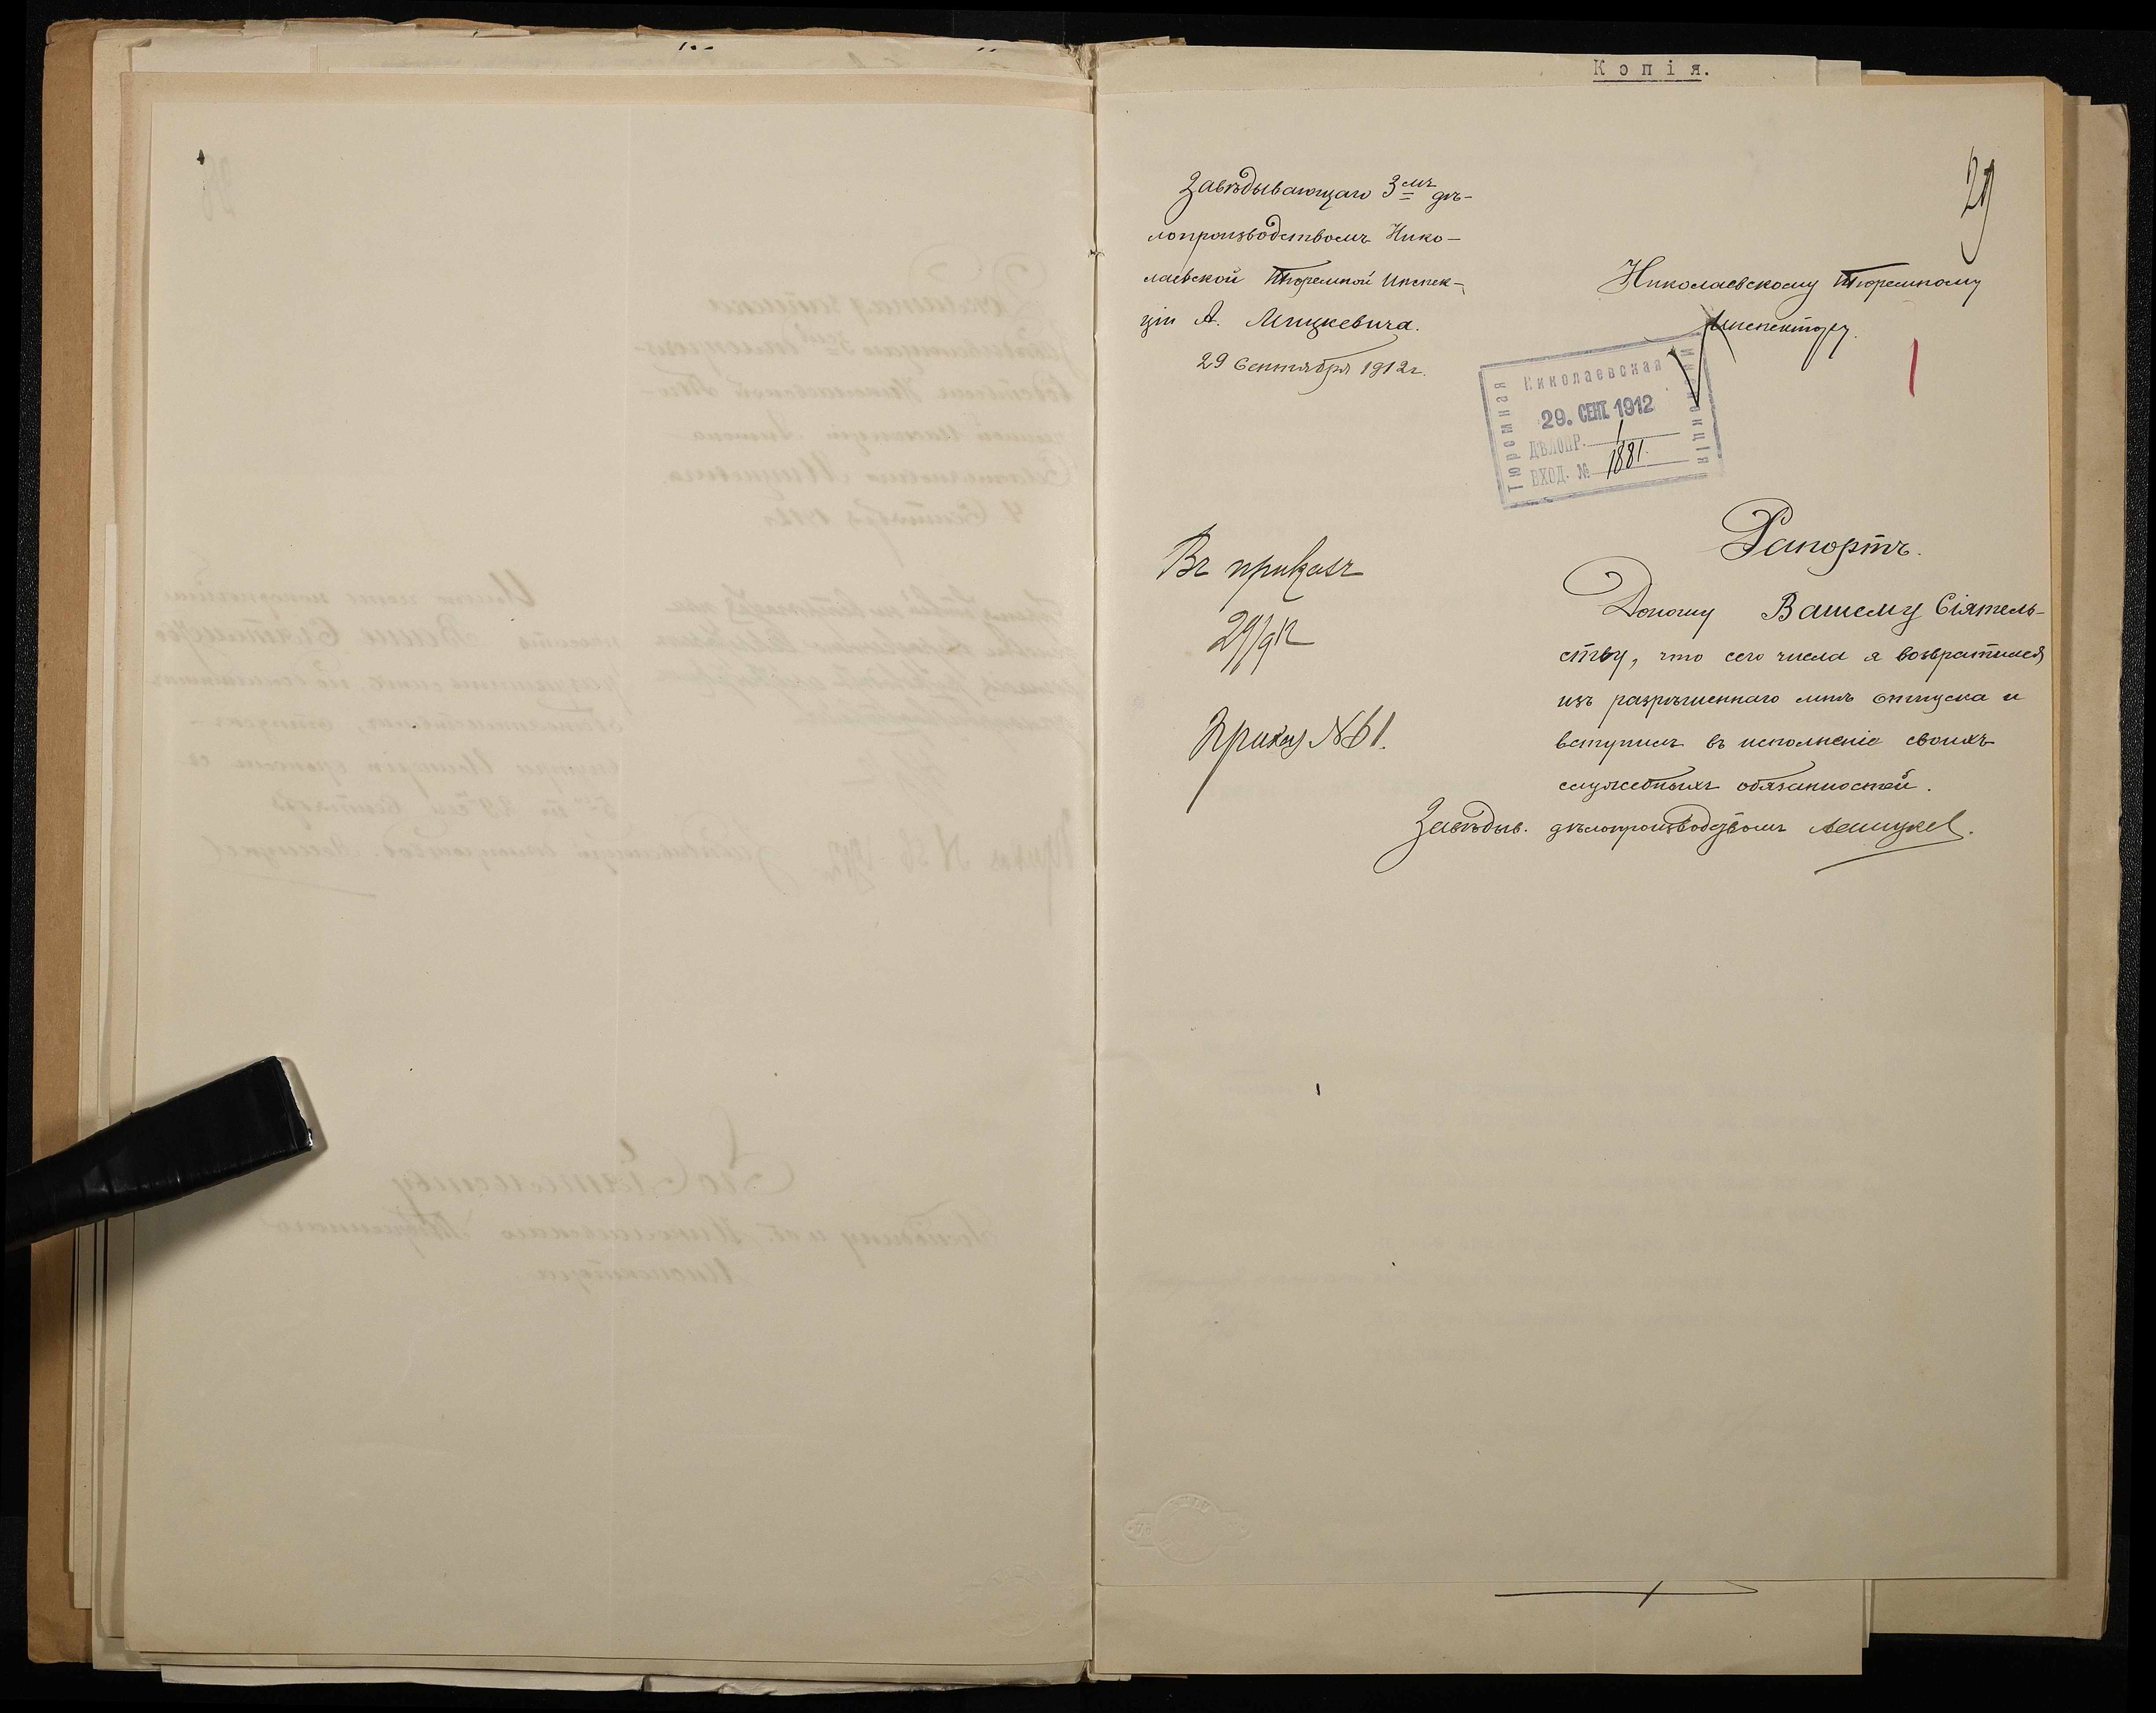 Копія.
29
Завѣдывающаго 3мъ дѣ-
лопроизводствомъ Нико-
лаевской Тюремной Инспек-
ціи А. Мицкевича.
29 Сентября 1912 г.
Николаевскому Тюремному
Инспектору.
Николаевская
Тюремная
Инспекція
29. СЕНТ. 1912
ДѢЛОПР. 1
ВХОД. № 1881.
Въ приказъ
29/9 12
Приказ № 61.
Рапортъ.
Доношу Вашему Сіятель-
ству, что сего числа я возвратился
изъ разрѣшеннаго мнѣ отпуска и
вступилъ въ исполненіе своихъ
служебныхъ обязанностей.
Завѣдыв. дѣлопроизводством